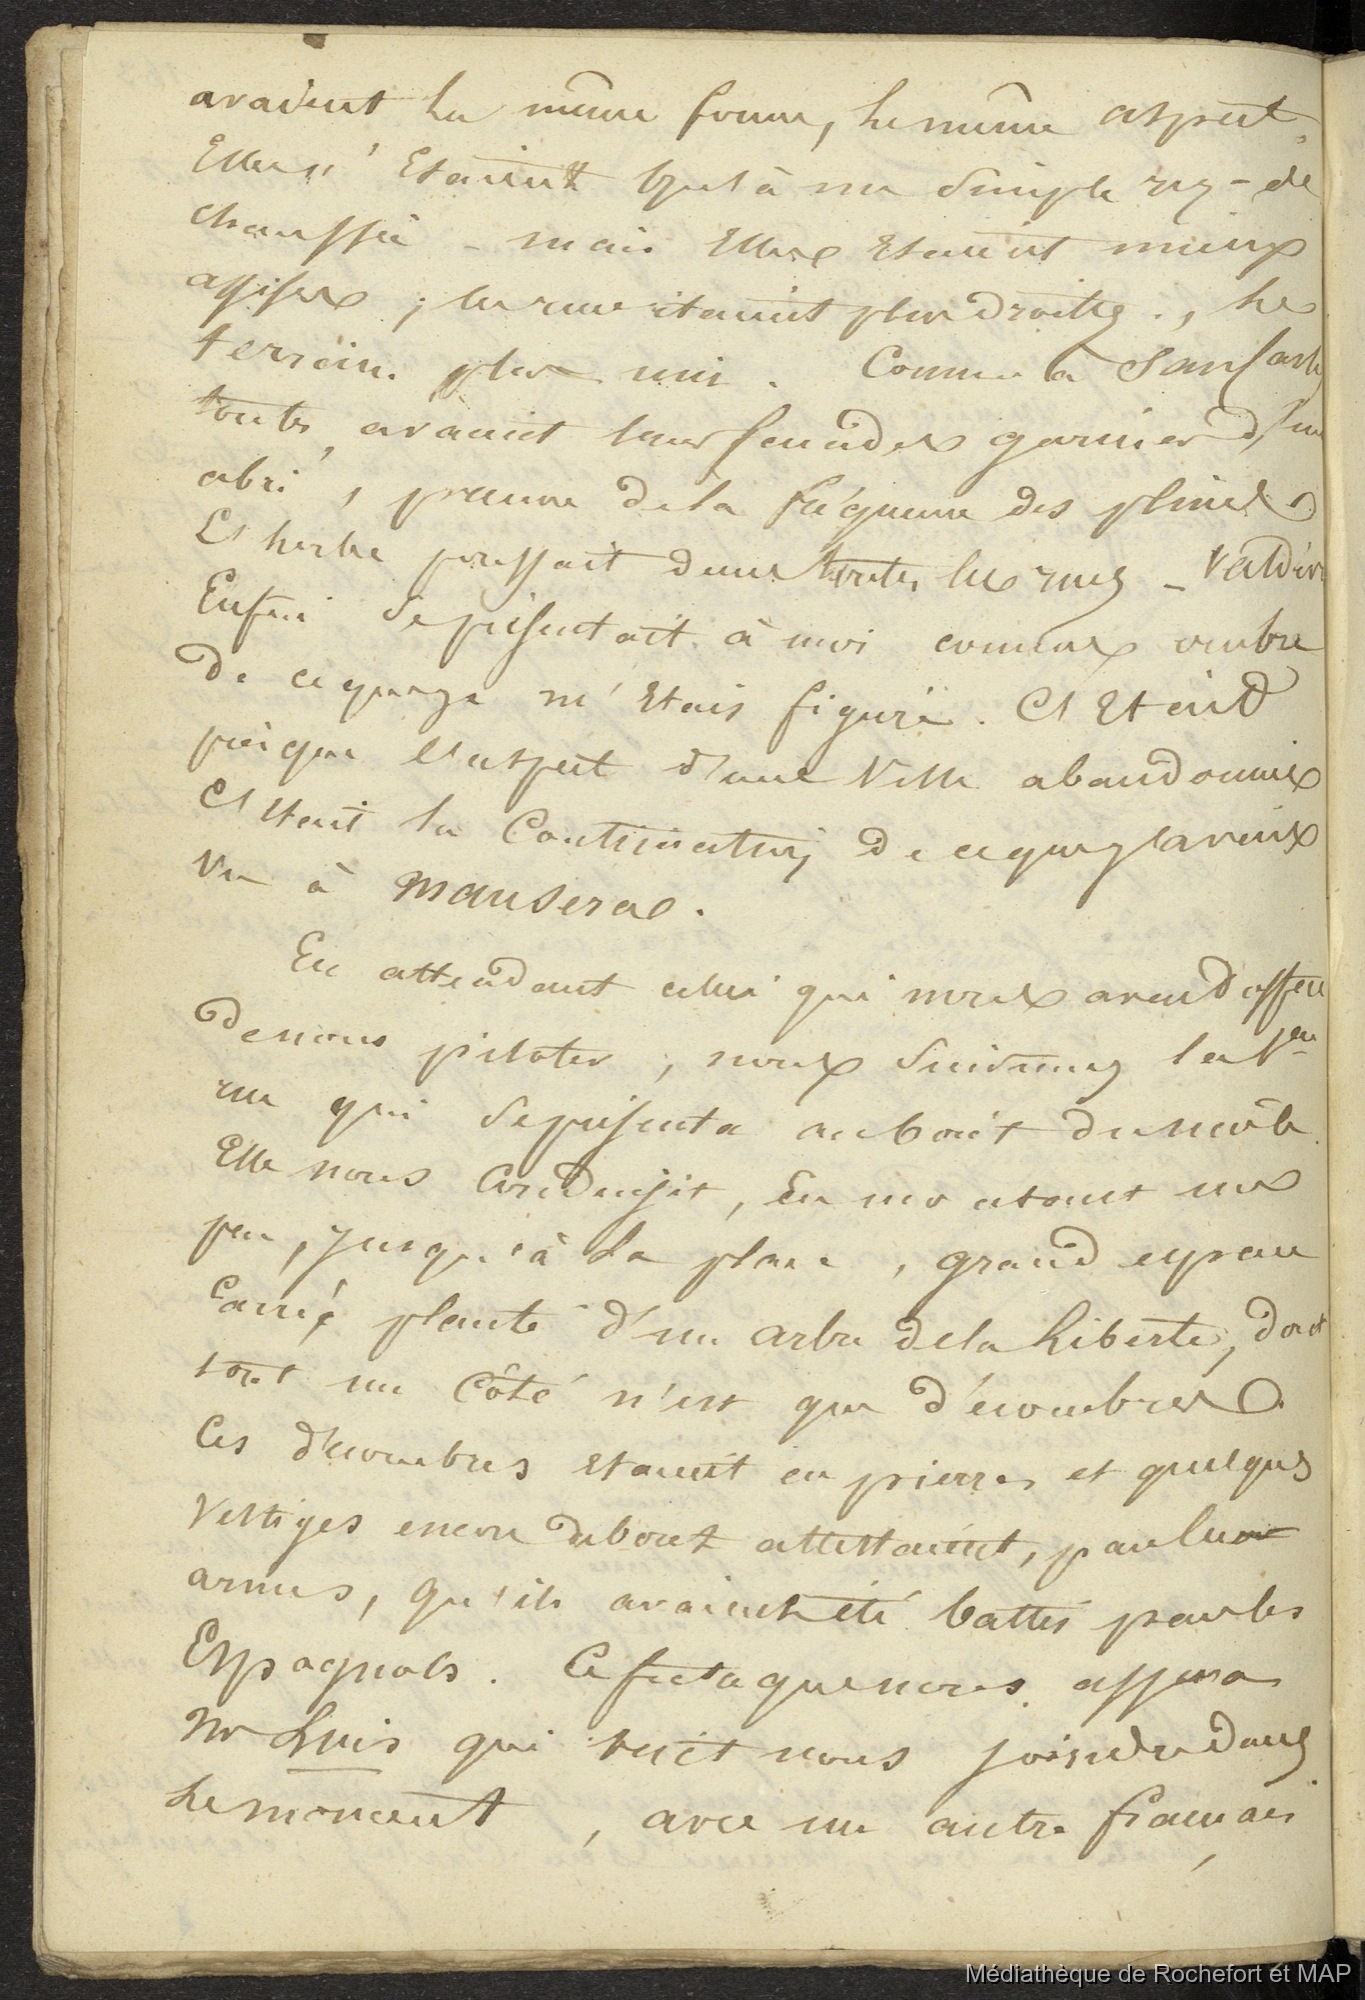 avaient la même forme, le même aspect,
Elles n'Etaient qu'à un simple rez-de
chaussée - mais Elles Etaient mieux
assises ; les rues étaient plus droites ., le
terrain plus uni . Comme à San Carlos
toutes avaient leur façades garnies d'un
abri , preuve de la fréquence des pluies.
L'herbe poussait dans toutes les rues - Valdivia
Enfin se présentait à moi comme ombre
De ce que je m'Etais figuré . C'Etait
presque l'aspect d'une Ville abandonnée
C'Etait la Continuation De ce que j'avais
Vu à Mansera.
En attendant celui qui nous avait offert
De nous piloter , nous suivimes la 1ere
rue qui se présenta au bout du môle.
Elle nous Conduisit, En montant un
peu, jusqu'à la place , grand espace
Carré, planté d'un arbre de la Liberté, dont
tout un Côté n'est que décombres.
Ces décombres Etaient en pierres et quelques
Vestiges encore debout attestaient, par leurs
armes, qu'ils avaient été battis par les
Espagnols . Ce fut ce que nous assura
Mr Luis qui vint nous joindre dans
Le moment , avec un autre français,
Médiathèque de Rochefort et MAP